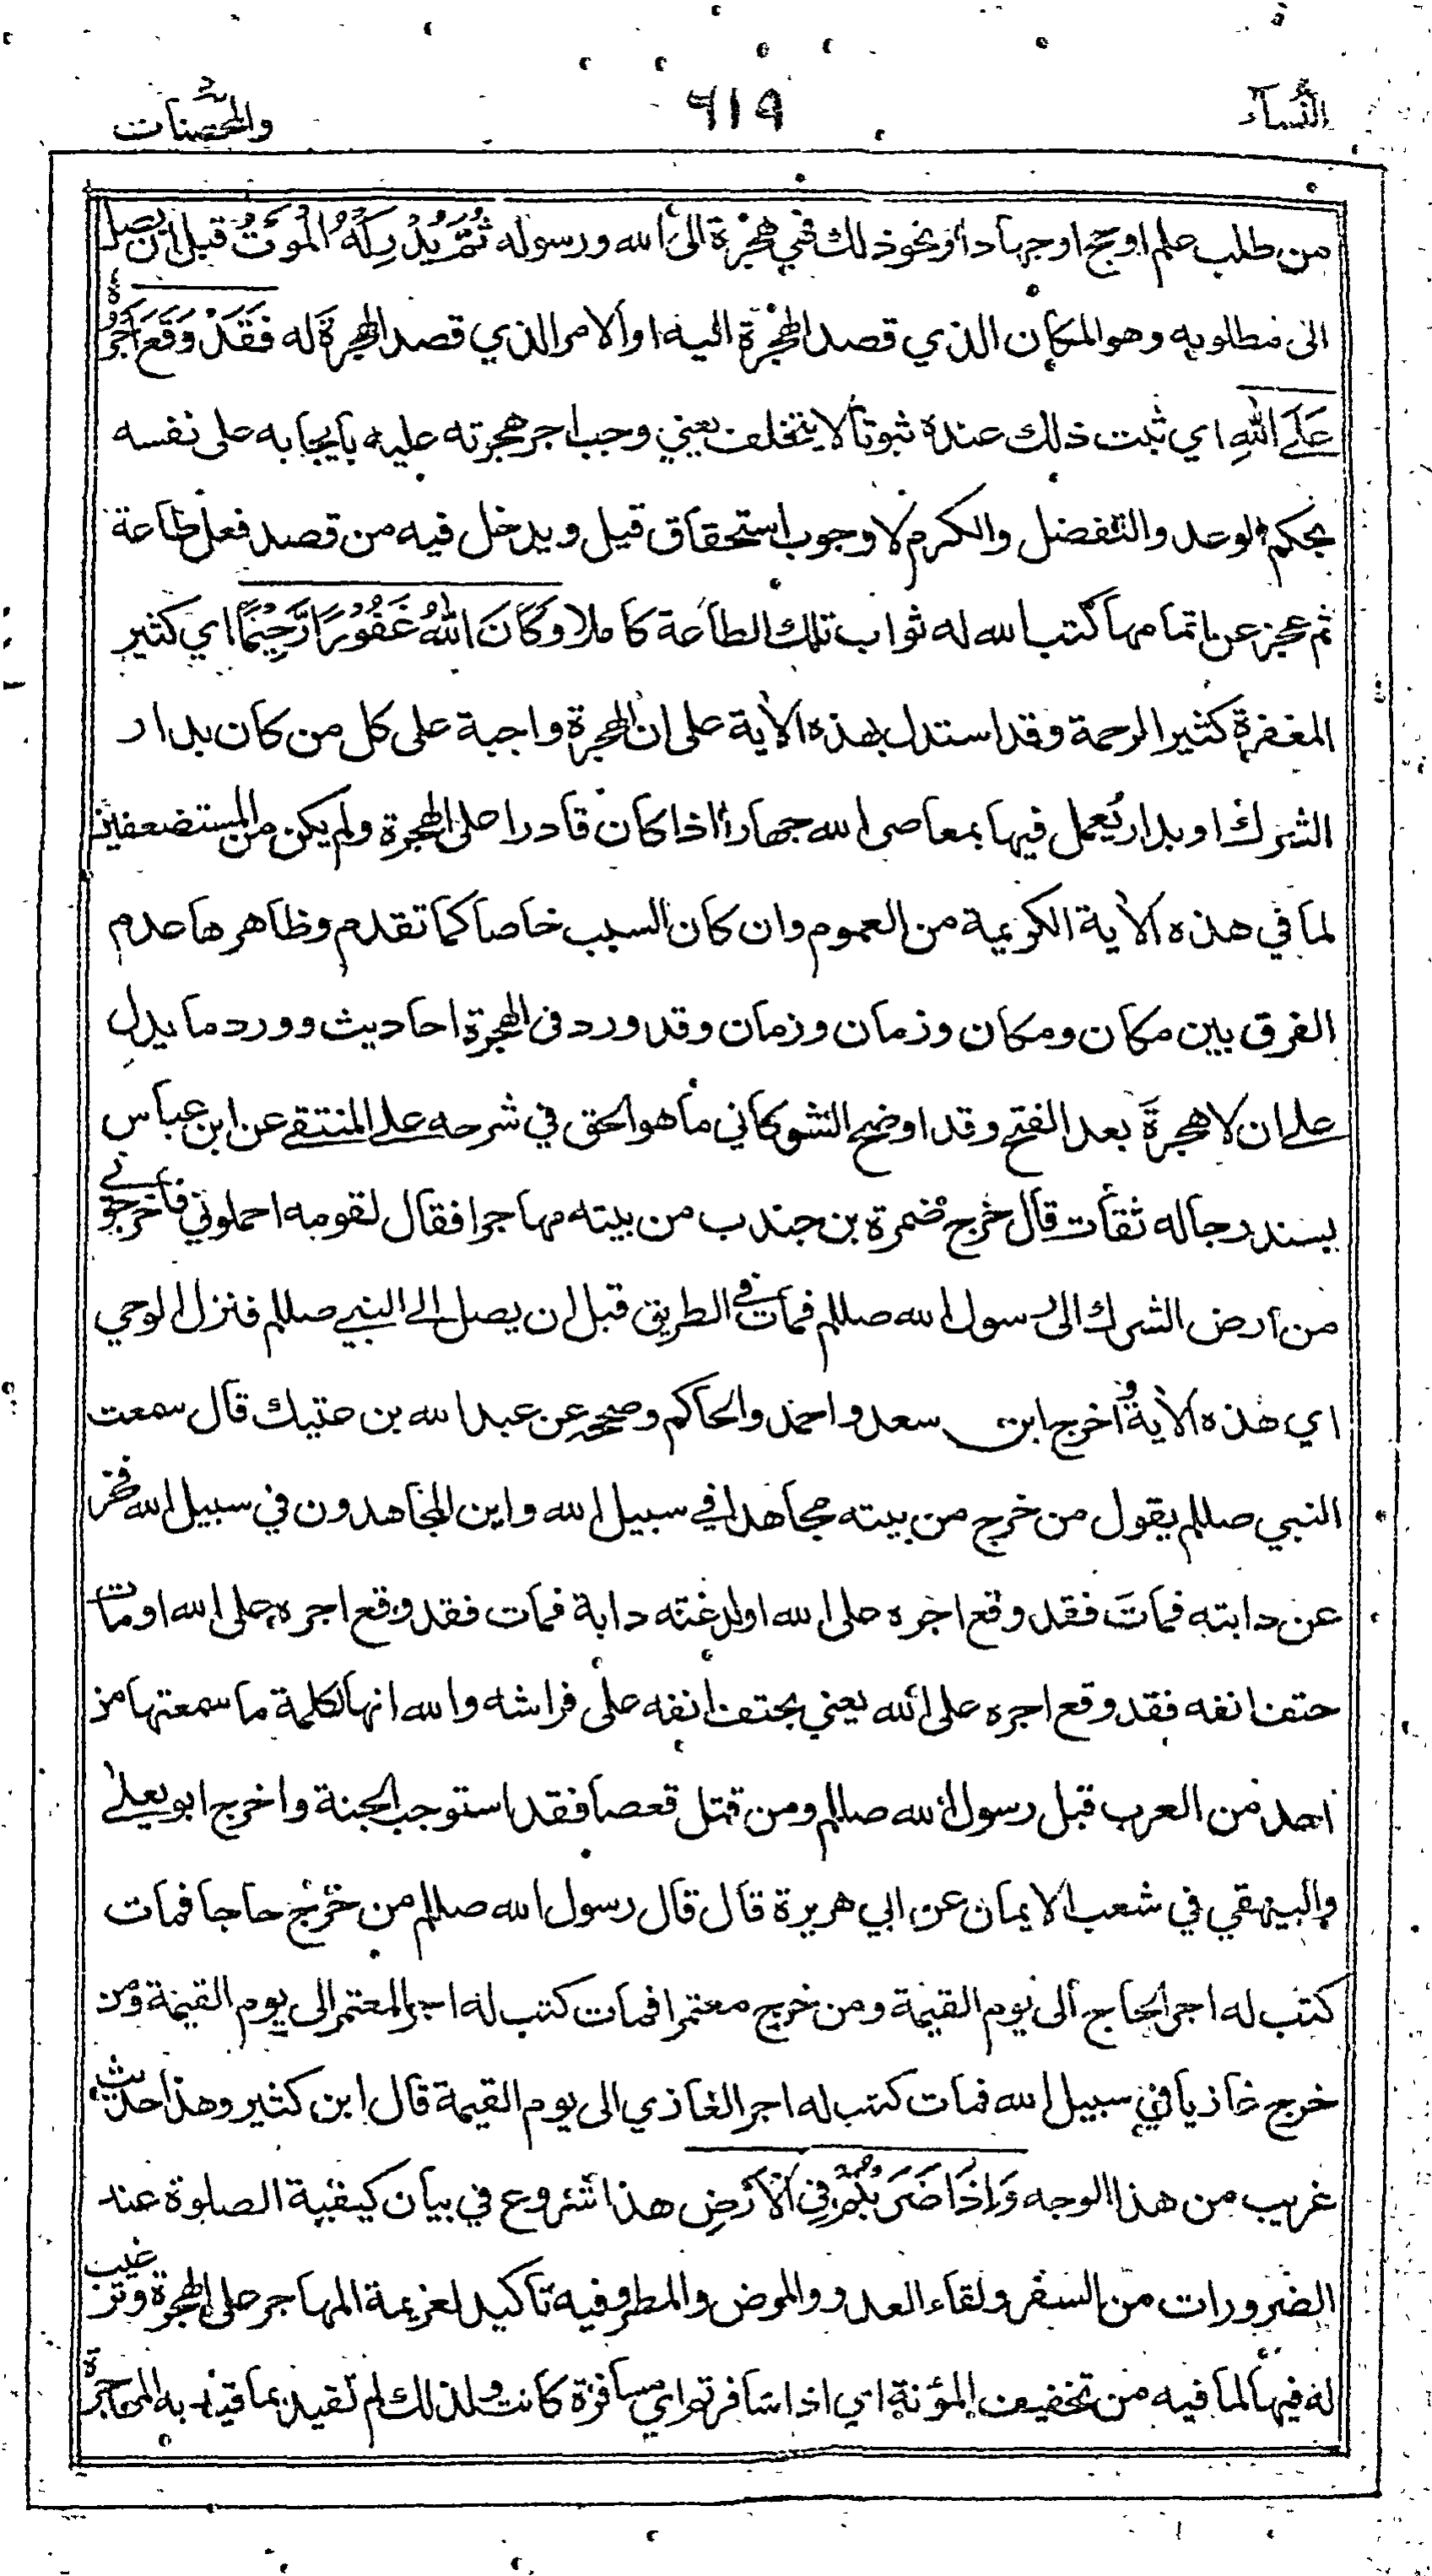 النساء
٦١٩
والمحصنات
من طلب علم او حج او جهاد او نحو ذلك فهي هجرة الى الله ورسوله ثُمَّ يُدْرِكْهُ الْمَوْتُ قبل ان يصل
الى مطلوبه وهو المكان الذي قصد الهجرة اليه او الامر الذي قصد الهجرة له فَقَدْ وَقَعَ اَجْرُهُ
عَلَى اللهِ اي ثبت ذلك عنده ثبوتا لا يتخلف يعني وجب اجر هجرته عليه بايجابه على نفسه
بحكم الوعد والتفضل والكرم لا وجوب استحقاق قيل ويدخل فيه من قصد فعل طاعة
ثم عجز عن اتمامها كتب الله له ثواب تلك الطاعة كاملا وَكَانَ اللهُ غَفُوْرًا رَّحِيْمًا اي كثير
المغفرة كثير الرحمة وقد استدل بهذه الآية على ان الهجرة واجبة على كل من كان بدار
الشرك او بدار يُعمل فيها بمعاصى الله جهارا اذا كان قادرا على الهجرة ولم يكن من المستضعفين
لما في هذه الآية الكريمة من العموم وان كان السبب خاصا كما تقدم وظاهرها عدم
الفرق بين مكان ومكان وزمان وزمان وقد ورد فى الهجرة احاديث وورد ما يدل
على ان لا هجرة بعد الفتح وقد اوضح الشوكاني ما هو الحق في شرحه على المنتقى عن ابن عباس
بسند رجاله ثقات قال خرج ضمرة بن جندب من بيته مهاجرا فقال لقومه احملوني فاخرجوني
من ارض الشرك الى رسول الله صللم فمات في الطريق قبل ان يصل الى النبي صللم فنزل الوحي
اي هذه الآية واخرج ابن سعد واحمد والحاكم وصححه عن عبد الله بن عتيك قال سمعت
النبي صللم يقول من خرج من بيته مجاهدا في سبيل الله واين المجاهدون في سبيل الله فخر
عن دابته فمات فقد وقع اجره على الله او لدغته دابة فمات فقد وقع اجره على الله او مات
حتف انفه فقد وقع اجره على الله يعني بحتف انفه على فراشه والله انها لكلمة ما سمعتها من
احد من العرب قبل رسول الله صللم ومن قتل قعصا فقد استوجب الجنة واخرج ابو يعلى
والبيهقي في شعب الايمان عن ابي هريرة قال قال رسول الله صللم من خرج حاجا فمات
كتب له اجر الحاج الى يوم القيمة ومن خرج معتمرا فمات كتب له اجر المعتمر الى يوم القيمة ومن
خرج غازيا في سبيل الله فمات كتب له اجر الغازي الى يوم القيمة قال ابن كثير وهذا حديث
غريب من هذا الوجه وَاِذَا ضَرَبْتُمْ فِي الْاَرْضِ هذا شروع في بيان كيفية الصلوة عند
الضرورات من السفر ولقاء العدو والمرض والمطر وفيه تاكيد لعزيمة المهاجر على الهجرة وترغيب
له فيها لما فيه من تخفيف المؤنة اي اذا سافرتم اي مسافرة كانت ولذلك لم تقيد بما قيد به المهاجرة